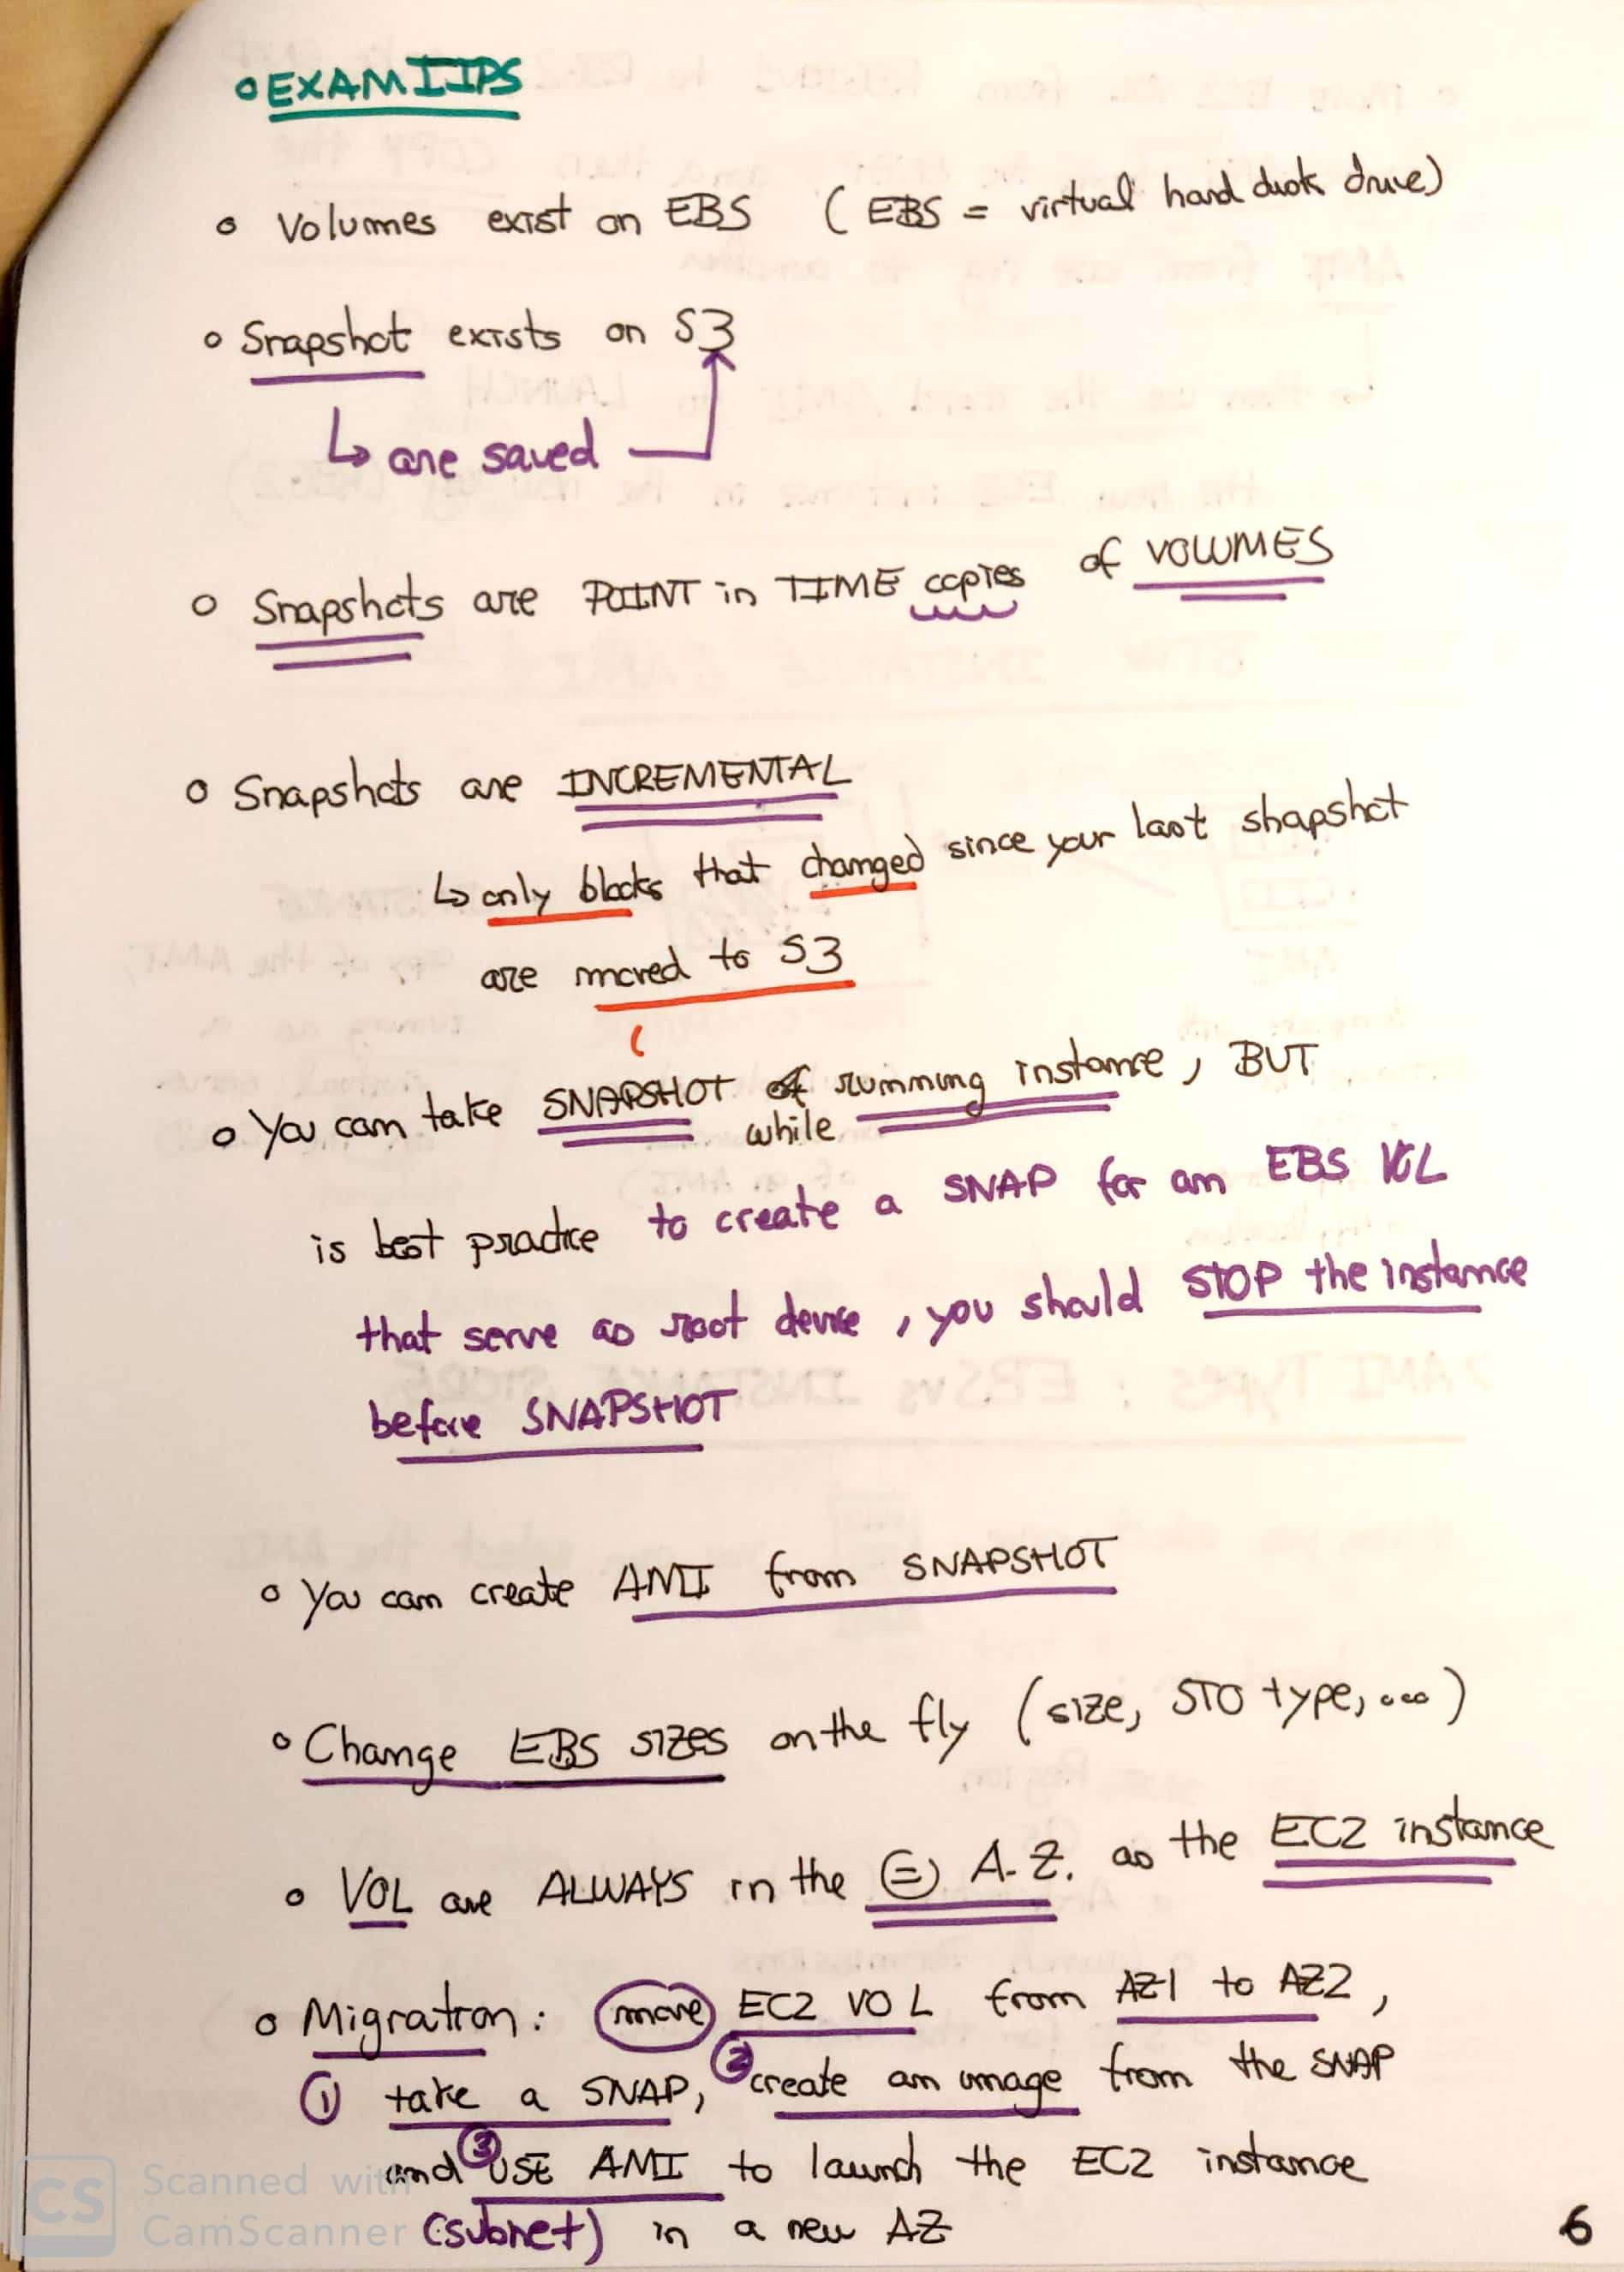 o EXAM TIPS
o Volumes exist on EBS (EBS = virtual hard disk drive)
o Snapshot exists on S3
↳ are saved
o Snapshots are POINT in TIME copies of VOLUMES
o Snapshots are INCREMENTAL
↳ only blocks that changed since your last shapshot
are moved to S3
o You can take SNAPSHOT of running instance, BUT
while
is best practice to create a SNAP for an EBS VOL
that serve as root device, you should STOP the instance
before SNAPSHOT
o You can create AMI from SNAPSHOT
o Change EBS sizes on the fly (size, STO type, ...)
o VOL are ALWAYS in the = A.Z. as the EC2 instance
o Migration: move EC2 VOL from AZ1 to AZ2,
① take a SNAP, ② create an image from the SNAP
and ③ USE AMI to launch the EC2 instance
(subnet) in a new AZ
CS Scanned with
CamScanner
6